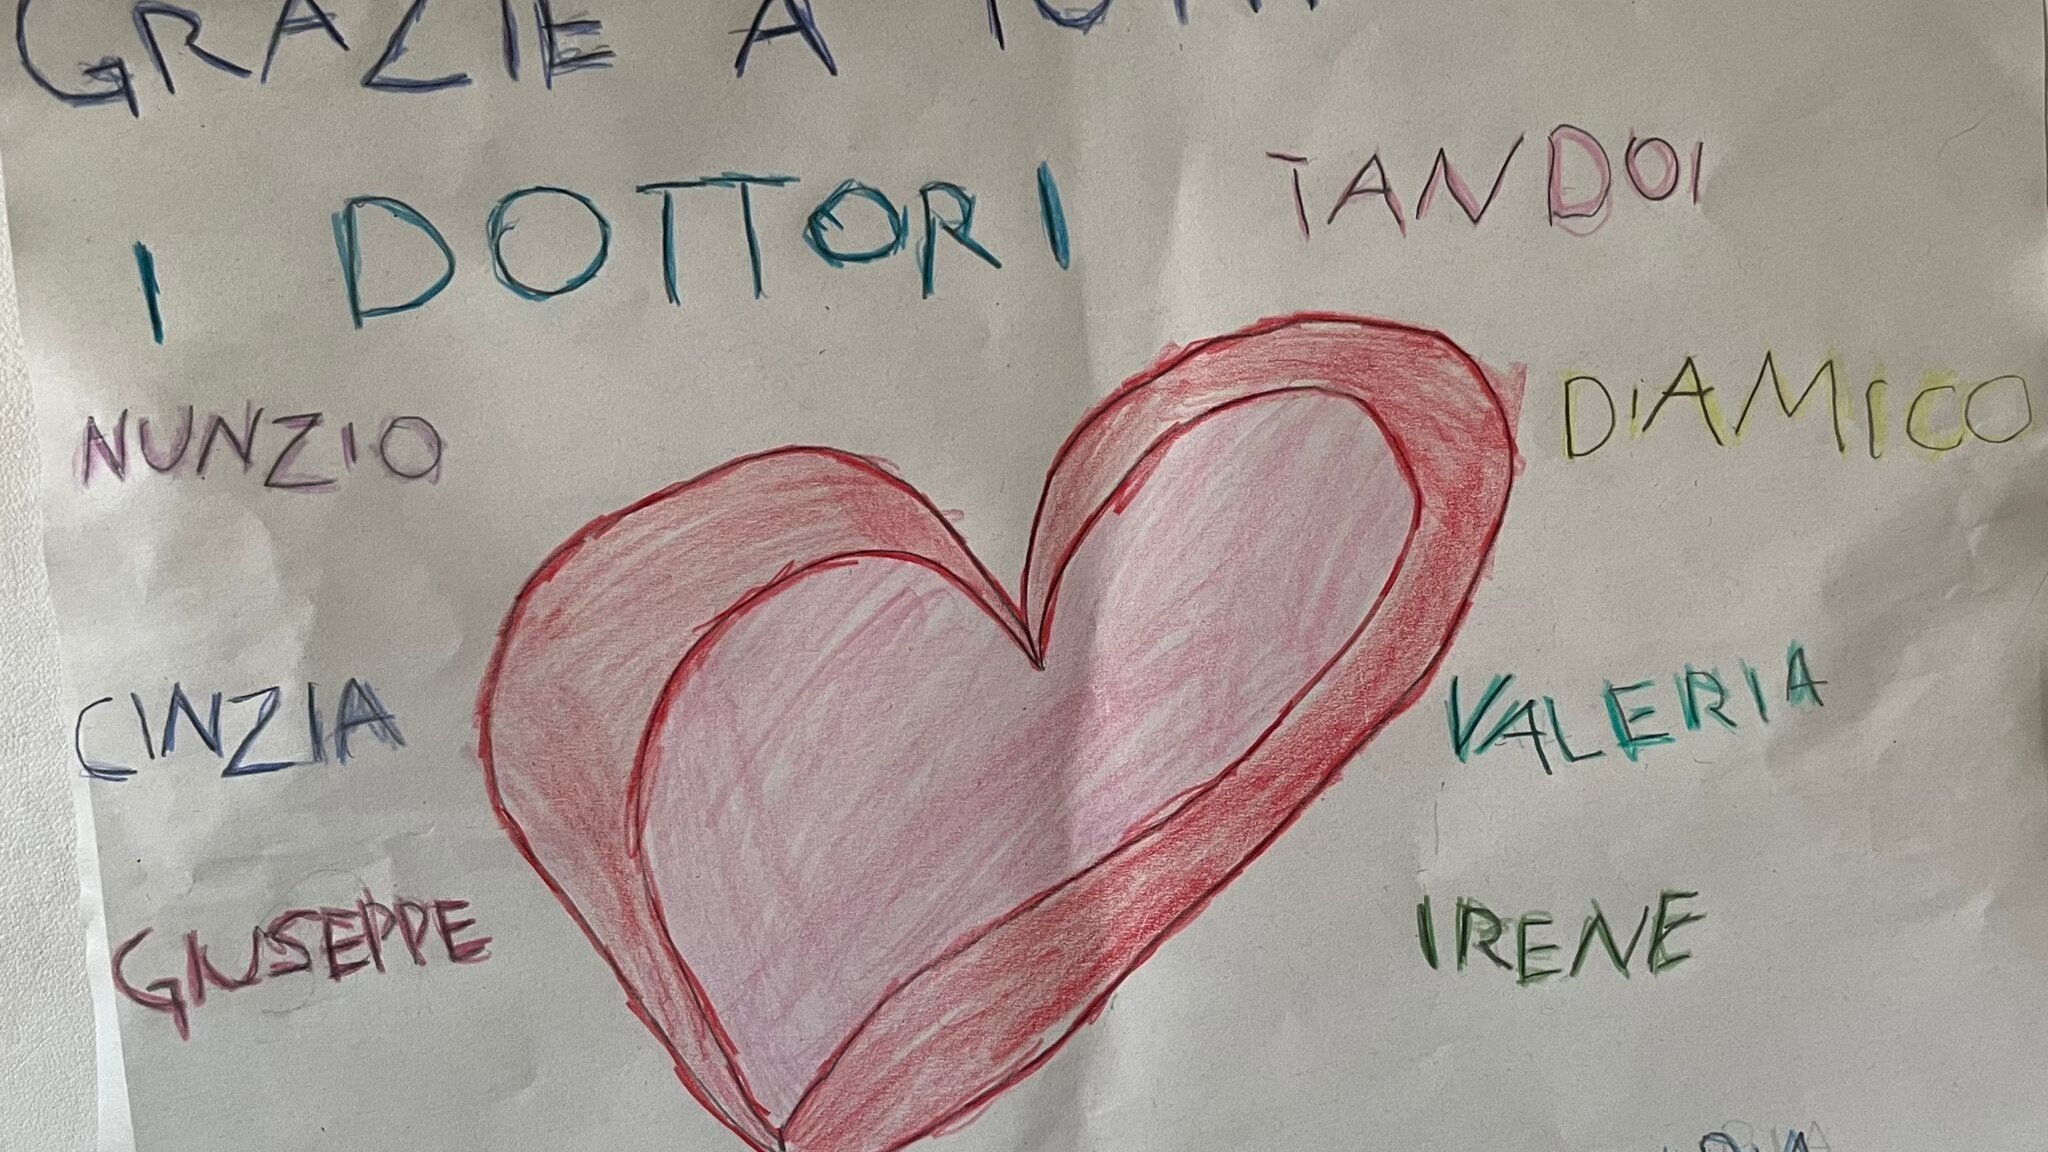 GRAZIE A TUTTI
I DOTTORI
TANDOI
NUNZIO
DIAMICO
CINZIA
VALERIA
GIUSEPPE
IRENE